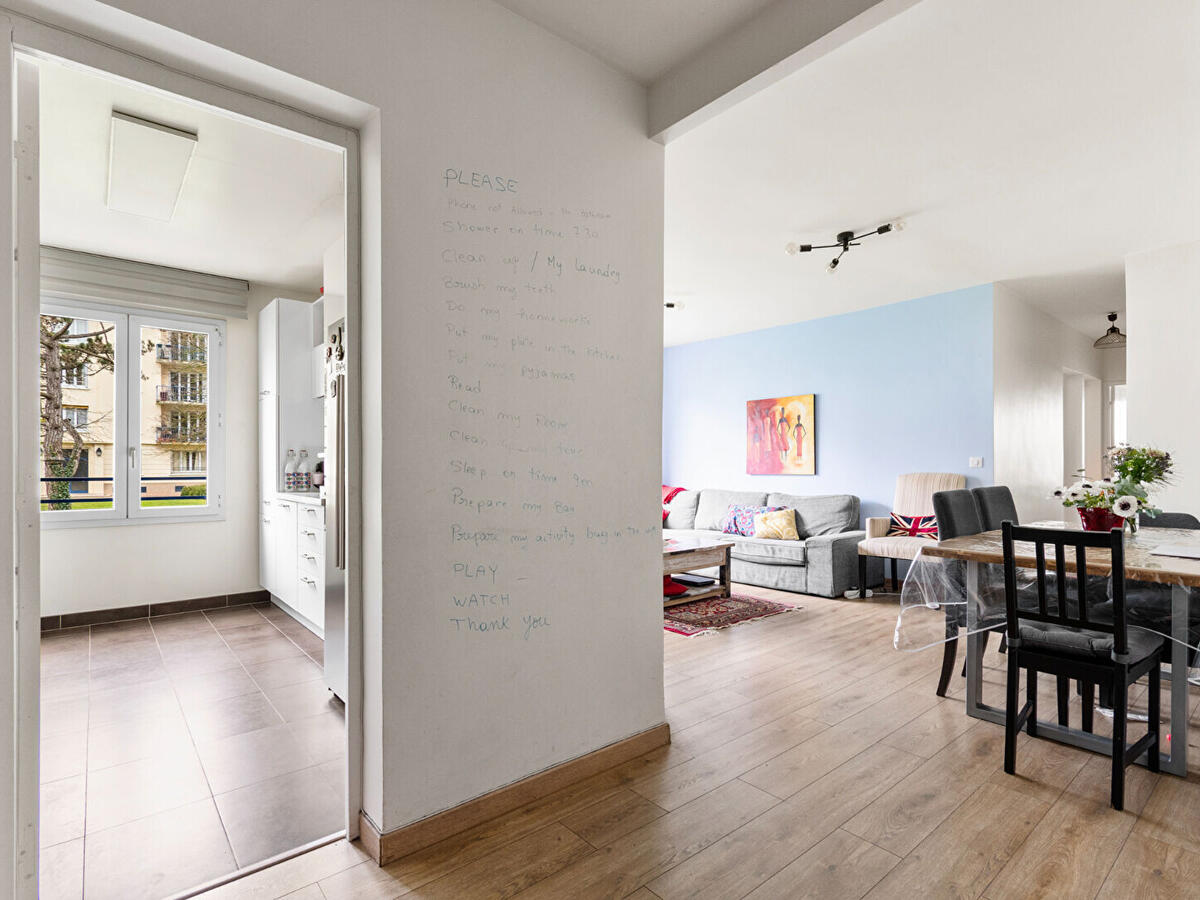 PLEASE
Phone not Allowed in the bathroom
Shower on time 7:30
Clean up / My laundry
Brush my teeth
Do my homeworks
Put my plate in the kitchen
Put my pyjamas
Read
Clean my Room
Clean
Sleep on time
Prepare my Bag
Prepare my activity bag in the
PLAY –
WATCH
Thank you